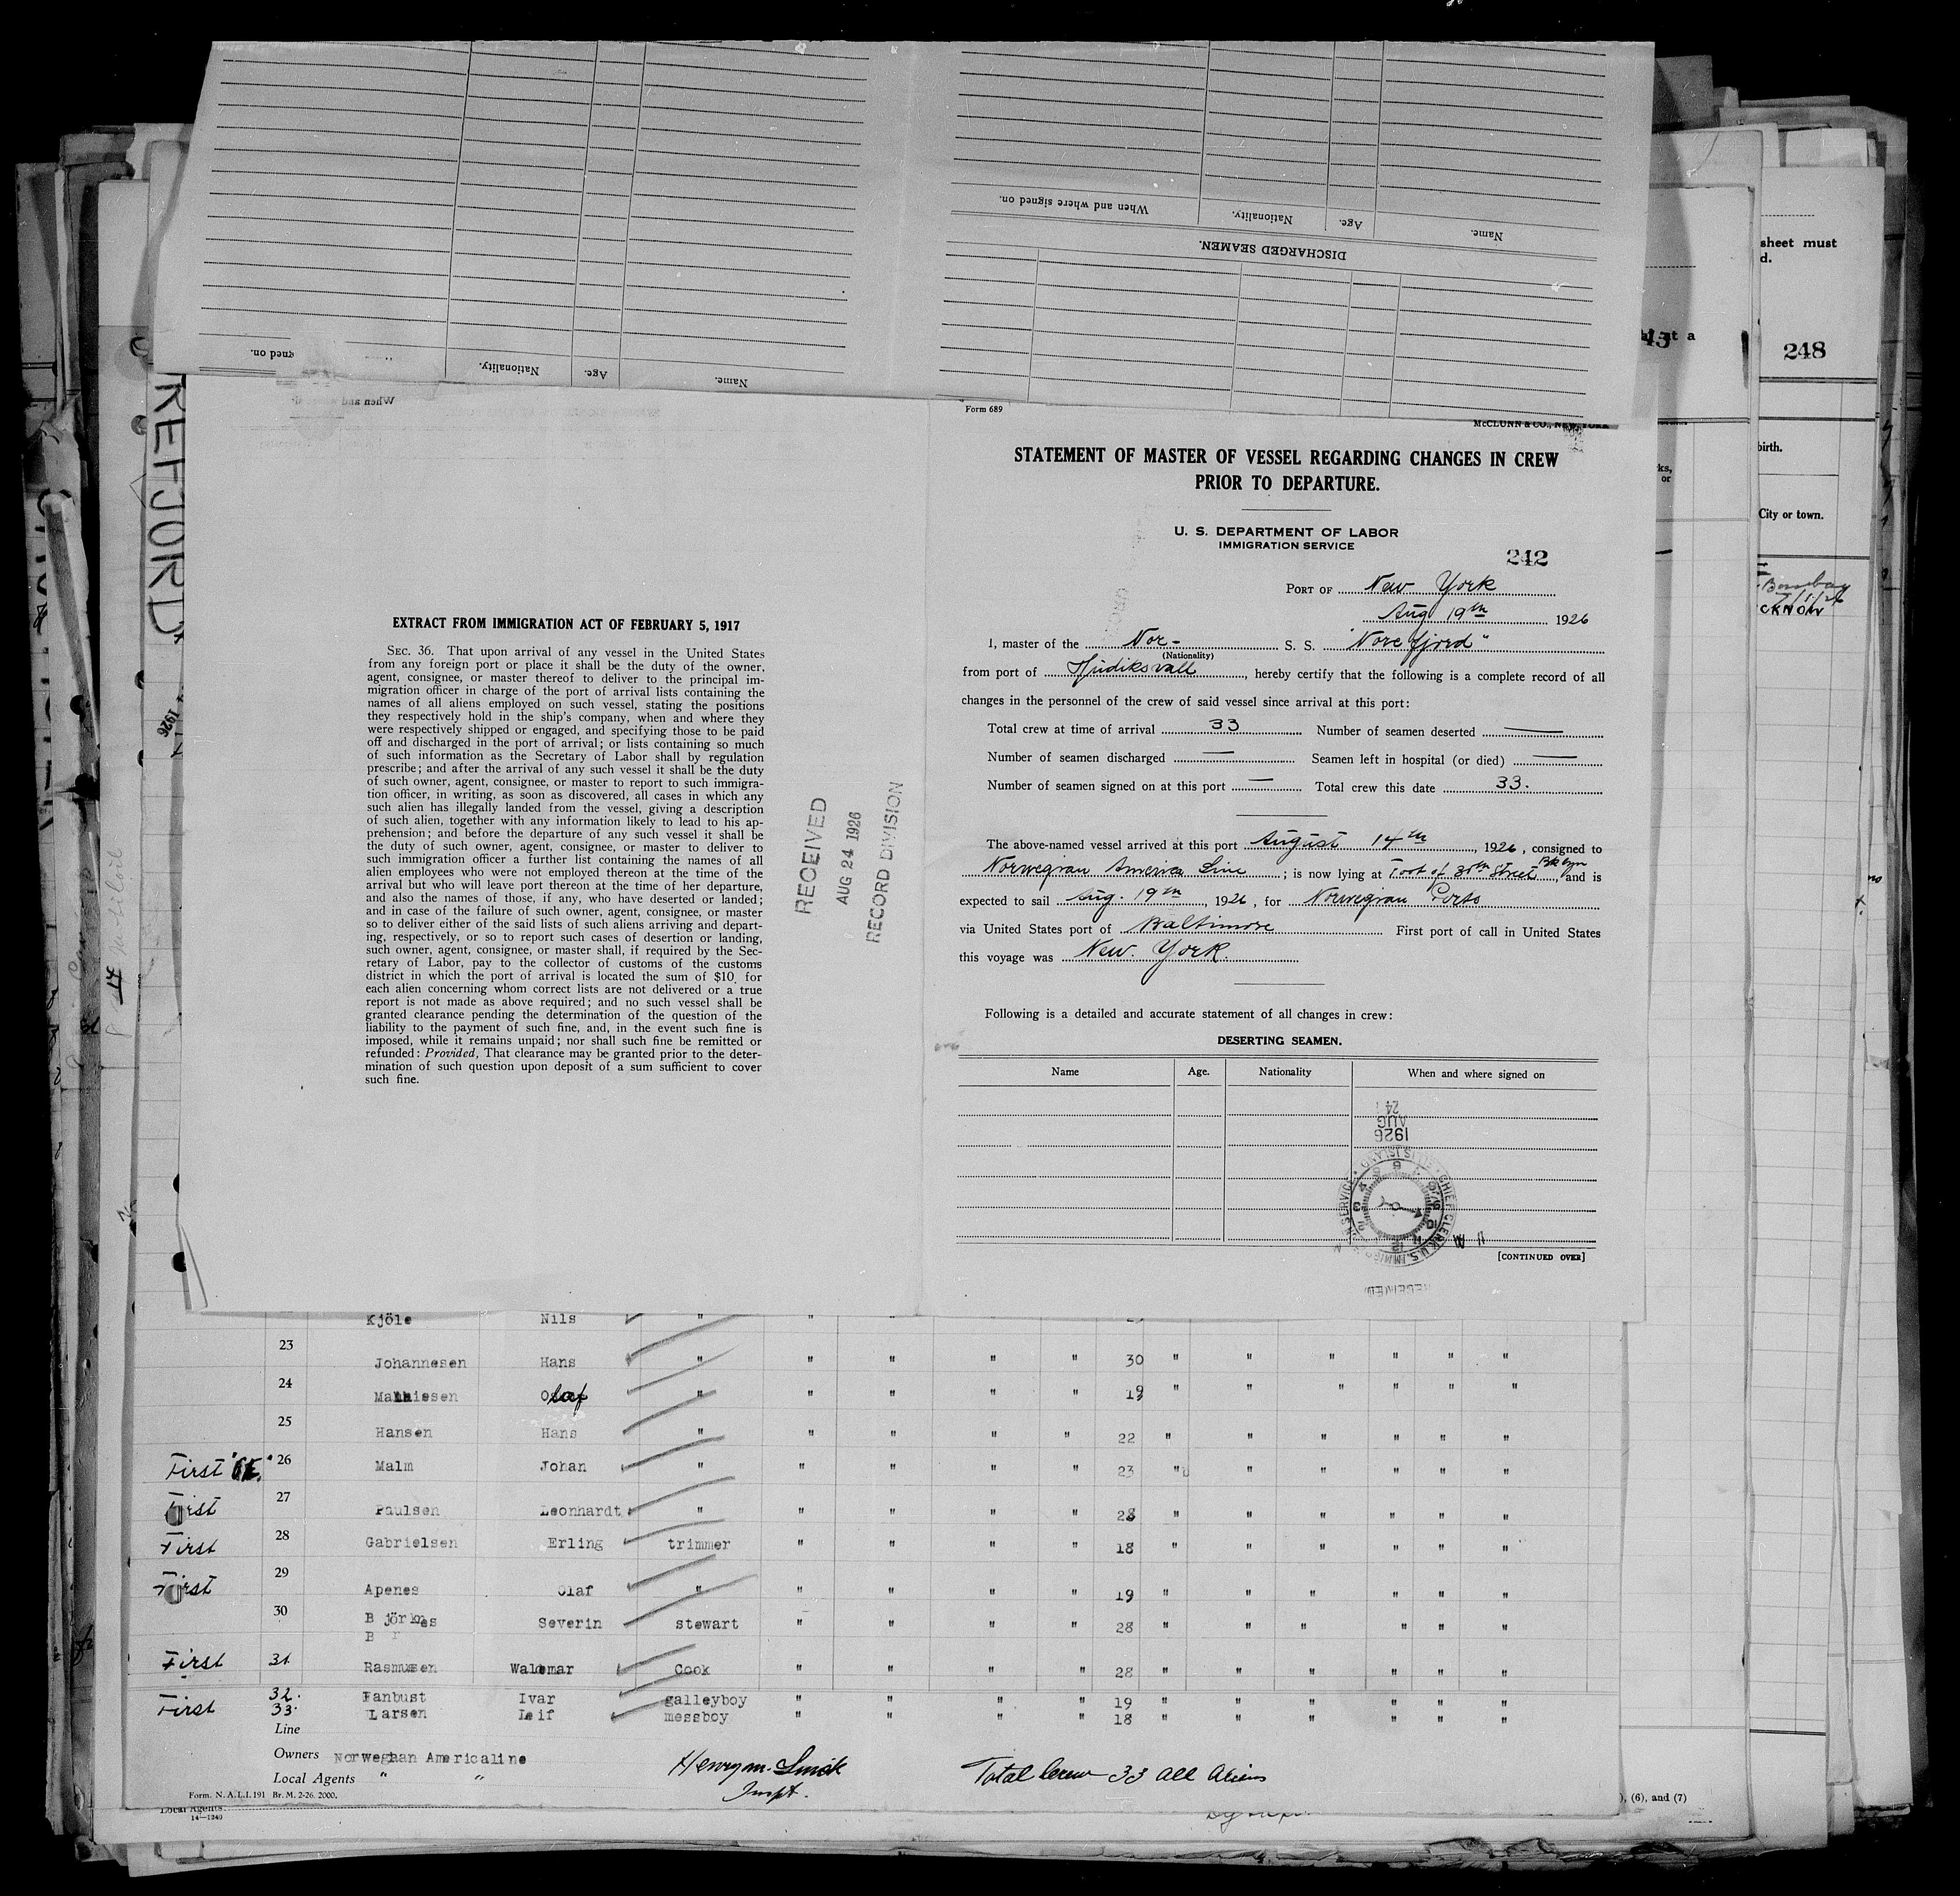 When and where signed on.
Nationality.
Age.
Name.
DISCHARGED SEAMEN.
gned on.
Nationality.
Age.
Name.
When and
sheet must
d.
at a
248
birth.
ks,
or
City or town.
Bombay
CKNOW
REFJORD
1926
EXTRACT FROM IMMIGRATION ACT OF FEBRUARY 5, 1917
SEC. 36. That upon arrival of any vessel in the United States
from any foreign port or place it shall be the duty of the owner,
agent, consignee, or master thereof to deliver to the principal im-
migration officer in charge of the port of arrival lists containing the
names of all aliens employed on such vessel, stating the positions
they respectively hold in the ship's company, when and where they
were respectively shipped or engaged, and specifying those to be paid
off and discharged in the port of arrival; or lists containing so much
of such information as the Secretary of Labor shall by regulation
prescribe; and after the arrival of any such vessel it shall be the duty
of such owner, agent, consignee, or master to report to such immigra-
tion officer, in writing, as soon as discovered, all cases in which any
such alien has illegally landed from the vessel, giving a description
of such alien, together with any information likely to lead to his ap-
prehension; and before the departure of any such vessel it shall be
the duty of such owner, agent, consignee, or master to deliver to
such immigration officer a further list containing the names of all
alien employees who were not employed thereon at the time of the
arrival but who will leave port thereon at the time of her departure,
and also the names of those, if any, who have deserted or landed;
and in case of the failure of such owner, agent, consignee, or master
so to deliver either of the said lists of such aliens arriving and depart-
ing, respectively, or so to report such cases of desertion or landing,
such owner, agent, consignee, or master shall, if required by the Sec-
retary of Labor, pay to the collector of customs of the customs
district in which the port of arrival is located the sum of $10 for
each alien concerning whom correct lists are not delivered or a true
report is not made as above required; and no such vessel shall be
granted clearance pending the determination of the question of the
liability to the payment of such fine, and, in the event such fine is
imposed, while it remains unpaid; nor shall such fine be remitted or
refunded: Provided, That clearance may be granted prior to the deter-
mination of such question upon deposit of a sum sufficient to cover
such fine.
RECEIVED
AUG 24 1926
RECORD DIVISION
Form 689
McCLUNN & CO., NEW YORK
STATEMENT OF MASTER OF VESSEL REGARDING CHANGES IN CREW
PRIOR TO DEPARTURE.
U. S. DEPARTMENT OF LABOR
IMMIGRATION SERVICE
242
PORT OF New York
Aug 19th 1926
I, master of the Nor- S. S. "Norefjord"
(Nationality)
from port of Hudiksvall, hereby certify that the following is a complete record of all
changes in the personnel of the crew of said vessel since arrival at this port:
Total crew at time of arrival 33 Number of seamen deserted —
Number of seamen discharged — Seamen left in hospital (or died) —
Number of seamen signed on at this port — Total crew this date 33.
The above-named vessel arrived at this port August 14th, 1926, consigned to
Norwegian America Line; is now lying at Foot of 30th Street Bklyn, and is
expected to sail Aug. 19th, 1926, for Norwegian Ports
via United States port of Baltimore First port of call in United States
this voyage was New. York.
Following is a detailed and accurate statement of all changes in crew:
DESERTING SEAMEN.
Name Age. Nationality When and where signed on
24
AUG
1926
CHIEF CLERK U.S. IMMIGRATION SERVICE · ELLIS ISLAND
RECEIVED
[CONTINUED OVER]
Kjöle Nils " " " " "
23 Johannesen Hans " " " " " 30 " " " " " "
24 Mathiesen Olaf " " " " " 19 " " " " " "
25 Hansen Hans " " " " " 22 " " " " " "
First "OE." 26 Malm Johan " " " " " 23 " " " " " "
First 27 Paulsen Leonhardt " " " " " 28 " " " " " "
First 28 Gabrielsen Erling trimmer " " " " 18 " " " " " "
First 29 Apenes Olaf " " " " " 19 " " " " " "
30 Björknes Severin stewart " " " " 28 " " " " " "
B r
First 31 Rasmussen Waldemar Cook " " " " 28 " " " " " "
32. Fanbust Ivar galleyboy " " " " 19 " " " " " "
First 33. Larsen Leif messboy " " " " 18 " " " " " "
Line
Owners Norweghan Americaline
Local Agents " "
Henry M. Smick
Inspt.
Total Crew 33 all Aliens
Form. N. A. L. I. 191 Br. M. 2-26. 2000.
Local Agents
14—1240
), (6), and (7)